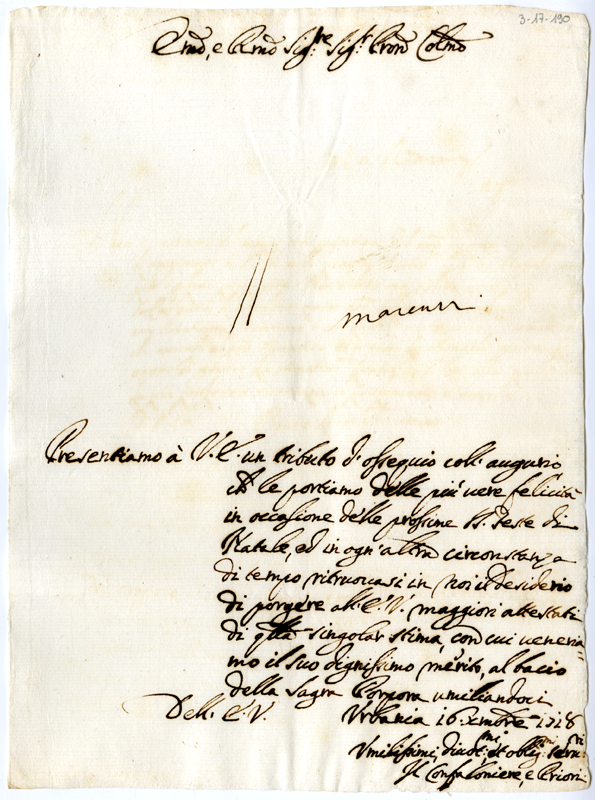 3-17-190
Em̃o, e Rm̃o Sig.re Sig.r Pron Colmo
Presentiamo à V.E. un tributo d'ossequio coll'augurio
che le portiamo delle più vere felicità
in occasione delle prossime SS. Feste di
Natale, ed in ogn'altra circonstanza
di tempo, ritruovasi in noi il desiderio
di porgere all'E.V. maggiori attestati
di q̃lla singolar stima, con cui veneria=
mo il suo dignissimo merito, al bacio
della Sagra Porpora umiliandoci
Dell'E.V. Urbania 16 Xmbre 1718
Umilissimi, divot.mi et oblig.mi serv.ri
Il Confaloniere, e Priori